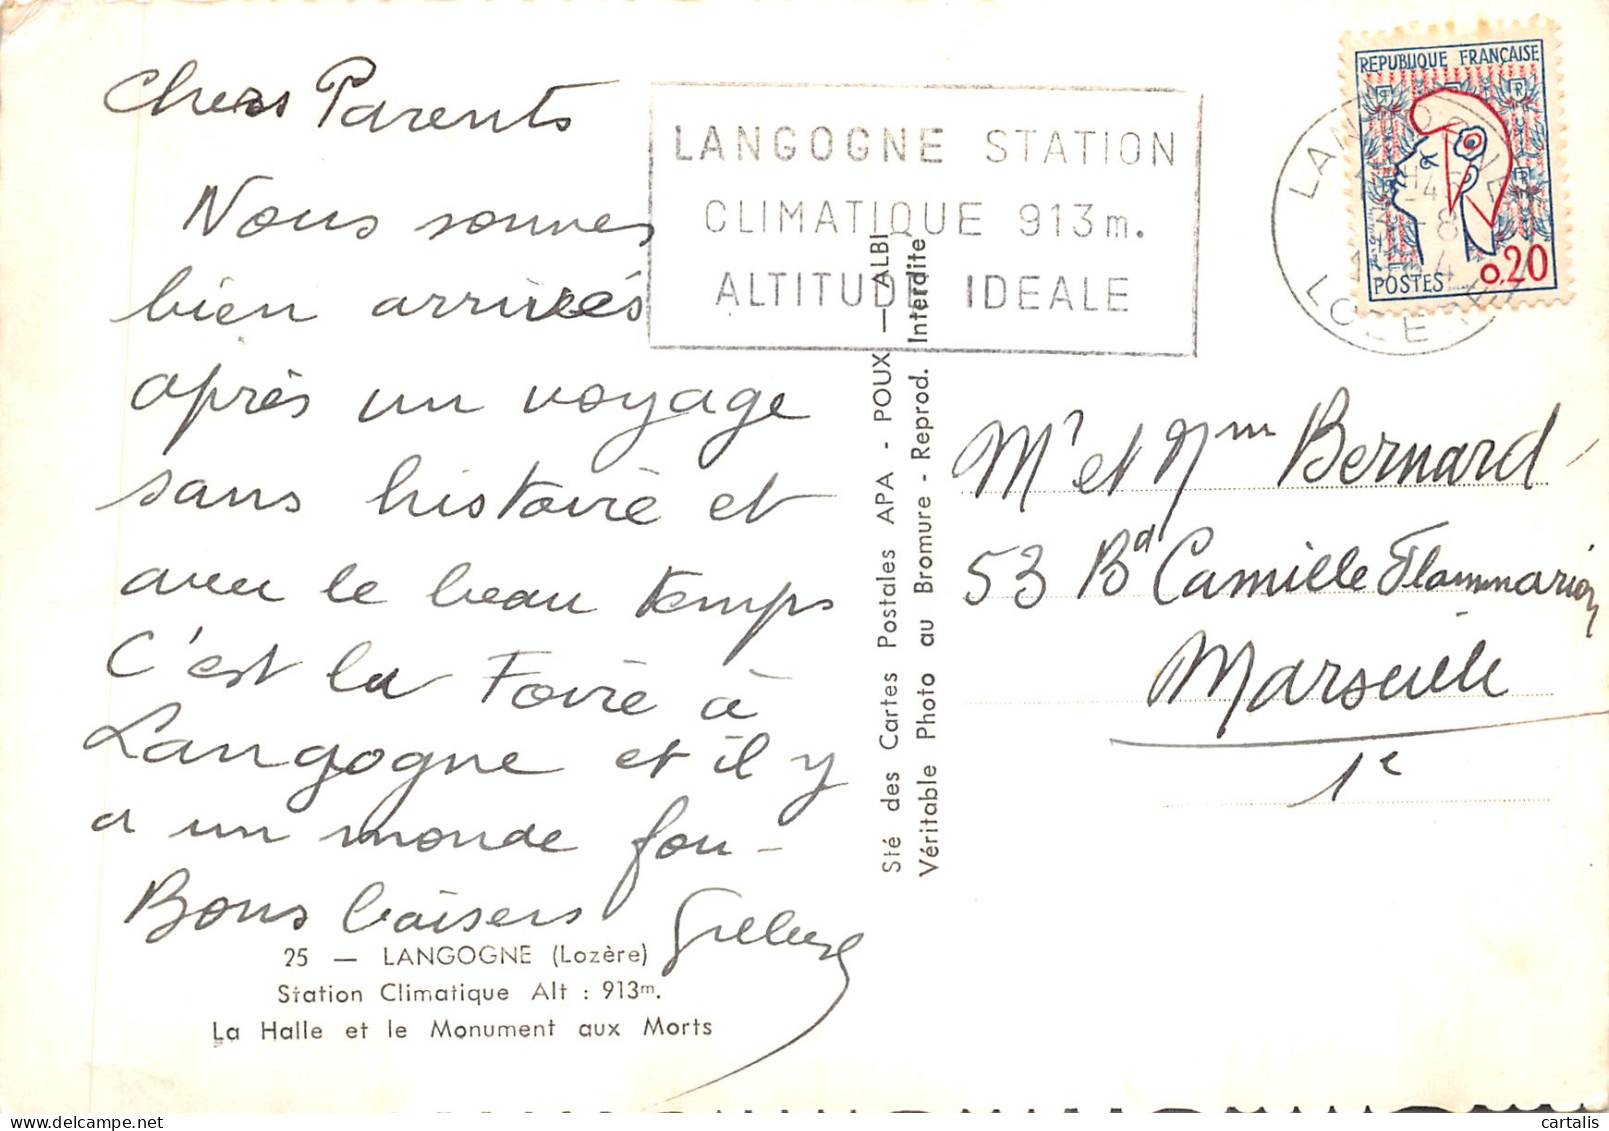 Chers Parents
Nous sommes
bien arrivés
après un voyage
sans histoire et
avec le beau temps
C'est la Foire à
Langogne et il y
a un monde fou -
Bons baisers
25 — LANGOGNE (Lozère)
Station Climatique Alt : 913m.
La Halle et le Monument aux Morts
LANGOGNE STATION
CLIMATIQUE 913m.
ALTITUDE IDEALE
Sté des Cartes Postales APA - POUX — ALBI
Véritable Photo au Bromure - Reprod. Interdite
REPUBLIQUE FRANÇAISE
POSTES 0,20
LANGOGNE
LOZERE
Mr et Mme Bernard
53 Bd Camille Flammarion
Marseille
1e
cartalis